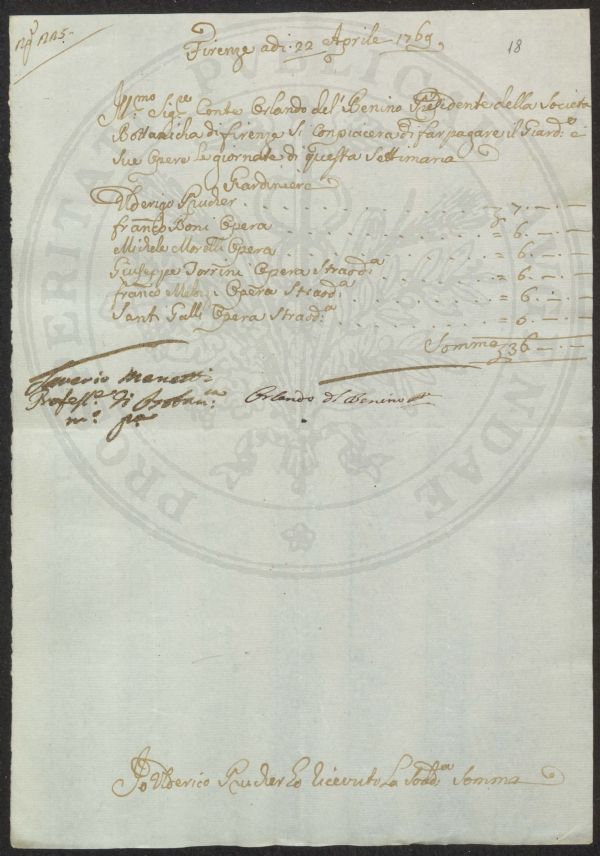 Nº 125.
18
Firenze adi. 22 Aprile 1769,
Ill.mo Sig.e Conte Orlando del Benino Presidente della Societa
Bottanicha di firenze Si Conpiacera di far pagare il Giard.e e
sue Opere le giornate di questa Settimana
Giardiniere
Ulderigo Prucher . . . . . . . . . £ 7 . — . —
franc.o Boni Opera . . . . . . . . . = 6 . — . —
Michele Morelli Opera . . . . . . . . . = 6 . — . —
Giuseppe Torrini Opera Straord.a . . . . . . = 6 . — . —
franco Opera Straord.a . . . . . . = 5 . — . —
Santi Galli Opera Straord.a . . . . . . = 6 . — . —
Somma £ 36 — . —
Saverio Manetti
Profess.e di Botan.ca
m.o p.a
Orlando del Benino
Io Ulderico Prucher ho ricevuto La Sod.a Somma
PROSPERITATI PUBLICAE AUGENDAE